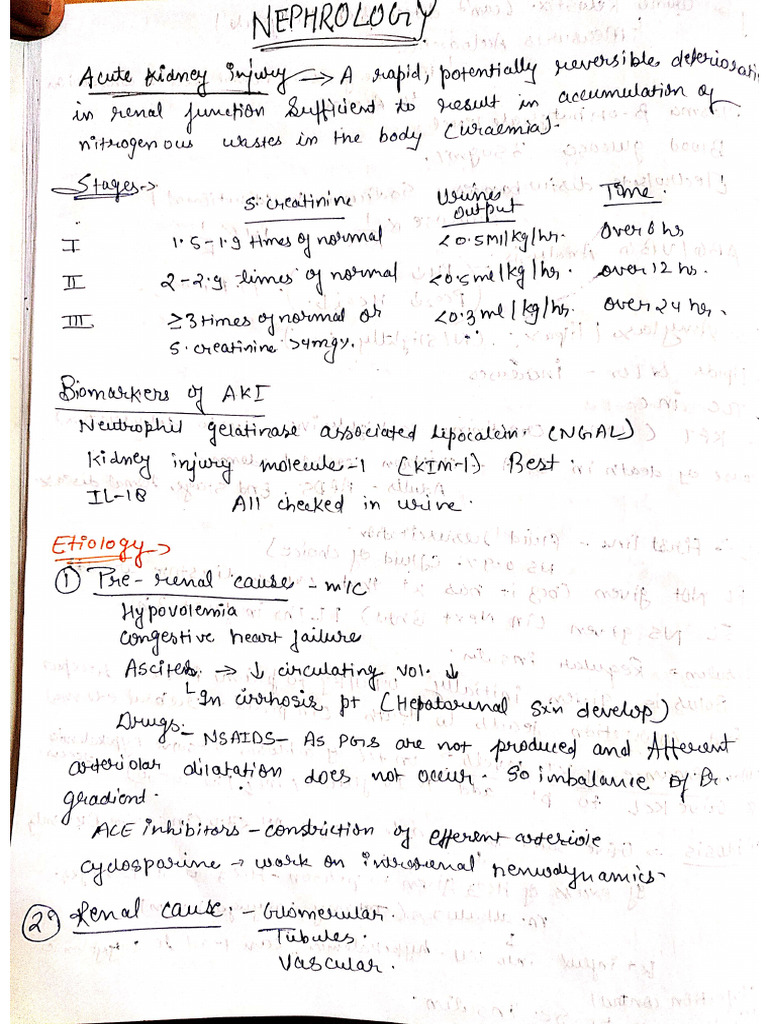 NEPHROLOGY
Acute Kidney injury → A rapid, potentially reversible deteriorati
in renal function sufficient to result in accumulation of
nitrogenous wastes in the body (uraemia).
Stages →
S. creatinine Urine output Time
I 1.5-1.9 times of normal <0.5ml/kg/hr. Over 6 hs
II 2-2.9 times of normal <0.5ml/kg/hr. over 12 hs.
III ≥3 times of normal or <0.3 ml/kg/hr. over 24 hr.
S. creatinine >4mg%.
Biomarkers of AKI
Neutrophil gelatinase associated lipocalein. (NGAL)
Kidney injury molecule-1 (KIM-1) Best.
IL-18 All checked in urine.
Etiology →
① Pre-renal cause - m/c
Hypovolemia
congestive heart failure
Ascites → ↓ circulating vol. ↓
└ In cirrhosis pt (Hepatorenal Sxn develop)
Drugs - NSAIDS - As PGIs are not produced and Afferent
arteriolar dilatation does not occur. So imbalance of Pr.
gradient.
ACE inhibitors - constriction of efferent arteriole
cyclosparine → work on intrarenal hemodynamics.
② Renal cause. - Glomerular.
Tubules.
Vascular.